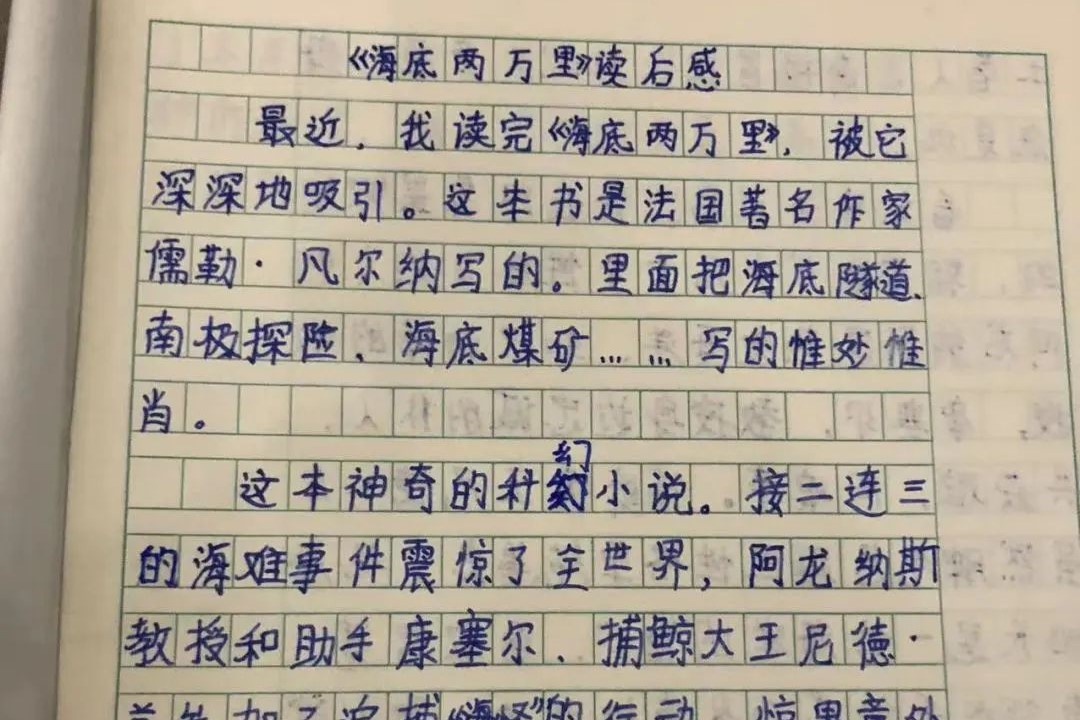 《海底两万里》读后感
最近，我读完《海底两万里》，被它
深深地吸引。这本书是法国著名作家
儒勒·凡尔纳写的。里面把海底隧道、
南极探险、海底煤矿……写的惟妙惟
肖。
这本神奇的科幻小说。接二连三
的海难事件震惊了全世界，阿龙纳斯
教授和助手康塞尔、捕鲸大王尼德·
兰参加了追捕"海怪"的行动，惊里意外